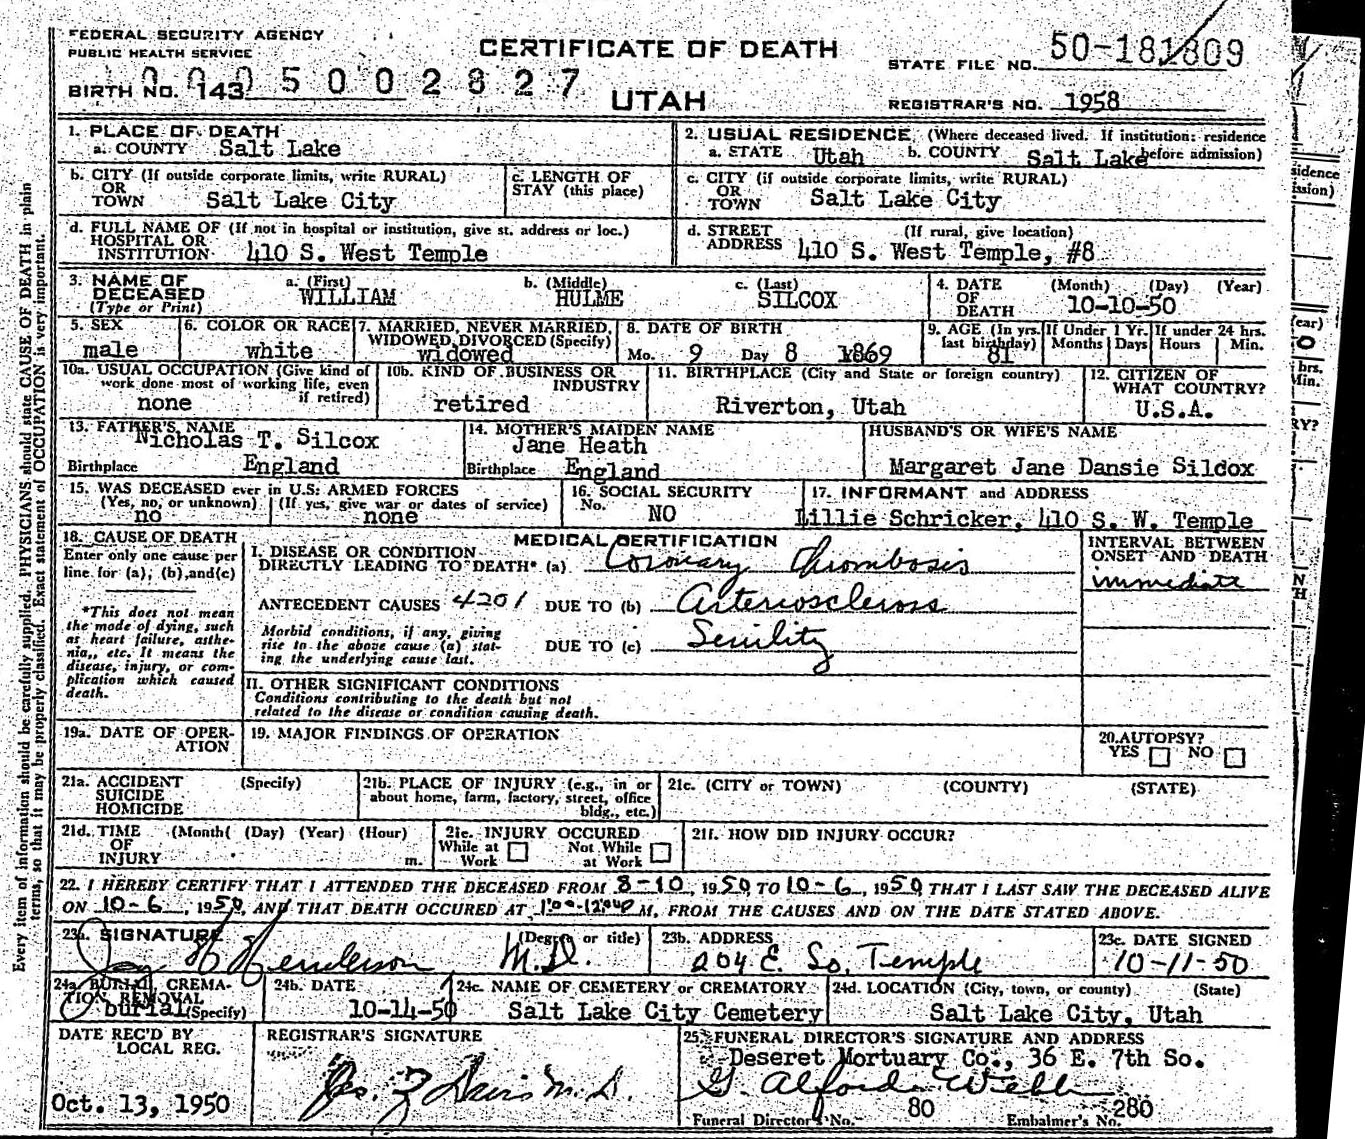 FEDERAL SECURITY AGENCY
PUBLIC HEALTH SERVICE
CERTIFICATE OF DEATH
STATE FILE NO. 50-181809
BIRTH NO. 143 0005002827
UTAH
REGISTRAR'S NO. 1958
1. PLACE OF DEATH
a. COUNTY Salt Lake
2. USUAL RESIDENCE (Where deceased lived. If institution: residence before admission)
a. STATE Utah b. COUNTY Salt Lake
b. CITY (If outside corporate limits, write RURAL)
OR
TOWN Salt Lake City
c. LENGTH OF
STAY (this place)
c. CITY (if outside corporate limits, write RURAL)
OR
TOWN Salt Lake City
d. FULL NAME OF (If not in hospital or institution, give st. address or loc.)
HOSPITAL OR
INSTITUTION 410 S. West Temple
d. STREET (If rural, give location)
ADDRESS 410 S. West Temple, #8
3. NAME OF
DECEASED
(Type or Print)
a. (First) WILLIAM
b. (Middle) HULME
c. (Last) SILCOX
4. DATE (Month) (Day) (Year)
OF
DEATH 10-10-50
5. SEX
male
6. COLOR OR RACE
white
7. MARRIED, NEVER MARRIED,
WIDOWED, DIVORCED (Specify)
widowed
8. DATE OF BIRTH
Mo. 9 Day 8 1869
9. AGE (In yrs. last birthday) 81
If Under 1 Yr. Months Days
If under 24 hrs. Hours Min.
10a. USUAL OCCUPATION (Give kind of
work done most of working life, even
if retired)
none
10b. KIND OF BUSINESS OR
INDUSTRY
retired
11. BIRTHPLACE (City and State or foreign country)
Riverton, Utah
12. CITIZEN OF
WHAT COUNTRY?
U.S.A.
13. FATHER'S NAME
Nicholas T. Silcox
Birthplace England
14. MOTHER'S MAIDEN NAME
Jane Heath
Birthplace England
HUSBAND'S OR WIFE'S NAME
Margaret Jane Dansie Silcox
15. WAS DECEASED ever in U.S. ARMED FORCES
(Yes, no, or unknown) (If yes, give war or dates of service)
no none
16. SOCIAL SECURITY
No. NO
17. INFORMANT and ADDRESS
Lillie Schricker, 410 S. W. Temple
18. CAUSE OF DEATH
Enter only one cause per
line for (a), (b), and (c)
*This does not mean
the mode of dying, such
as heart failure, asthe-
nia,, etc. It means the
disease, injury, or com-
plication which caused
death.
MEDICAL CERTIFICATION
I. DISEASE OR CONDITION
DIRECTLY LEADING TO DEATH* (a) Coronary Thrombosis
INTERVAL BETWEEN
ONSET AND DEATH
immediate
ANTECEDENT CAUSES 4201 DUE TO (b) Arteriosclerosis
Morbid conditions, if any, giving
rise to the above cause (a) stat-
ing the underlying cause last.
DUE TO (c) Senility
II. OTHER SIGNIFICANT CONDITIONS
Conditions contributing to the death but not
related to the disease or condition causing death.
19a. DATE OF OPER-
ATION
19. MAJOR FINDINGS OF OPERATION
20. AUTOPSY?
YES NO
21a. ACCIDENT (Specify)
SUICIDE
HOMICIDE
21b. PLACE OF INJURY (e.g., in or
about home, farm, factory, street, office
bldg., etc.)
21c. (CITY or TOWN) (COUNTY) (STATE)
21d. TIME (Month( (Day) (Year) (Hour)
OF
INJURY m.
21e. INJURY OCCURED
While at Work Not While at Work
21f. HOW DID INJURY OCCUR?
22. I HEREBY CERTIFY THAT I ATTENDED THE DECEASED FROM 8-10, 1950 TO 10-6, 1950 THAT I LAST SAW THE DECEASED ALIVE
ON 10-6, 1950, AND THAT DEATH OCCURED AT M, FROM THE CAUSES AND ON THE DATE STATED ABOVE.
23a. SIGNATURE (Degree or title)
Henderson M.D.
23b. ADDRESS
204 E. So. Temple
23c. DATE SIGNED
10-11-50
24a. BURIAL, CREMA-
TION REMOVAL
burial (Specify)
24b. DATE
10-14-50
24c. NAME OF CEMETERY or CREMATORY
Salt Lake City Cemetery
24d. LOCATION (City, town, or county) (State)
Salt Lake City, Utah
DATE REC'D BY
LOCAL REG.
Oct. 13, 1950
REGISTRAR'S SIGNATURE
Davis M.D.
25. FUNERAL DIRECTOR'S SIGNATURE AND ADDRESS
Deseret Mortuary Co., 36 E. 7th So.
G. Alford Webb
Funeral Director's No. 80 Embalmer's No. 280
Every item of information should be carefully supplied. PHYSICIANS should state CAUSE OF DEATH in plain
terms, so that it may be properly classified. Exact statement of OCCUPATION is very important.